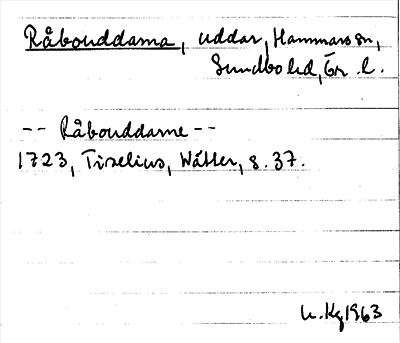 Råbouddarna, uddar, Hammars sn,
Sundbo hd, Ör. l.
-- Råbouddarne --
1723, Tiselius, Wätter, s. 37.
u. Kg 1963